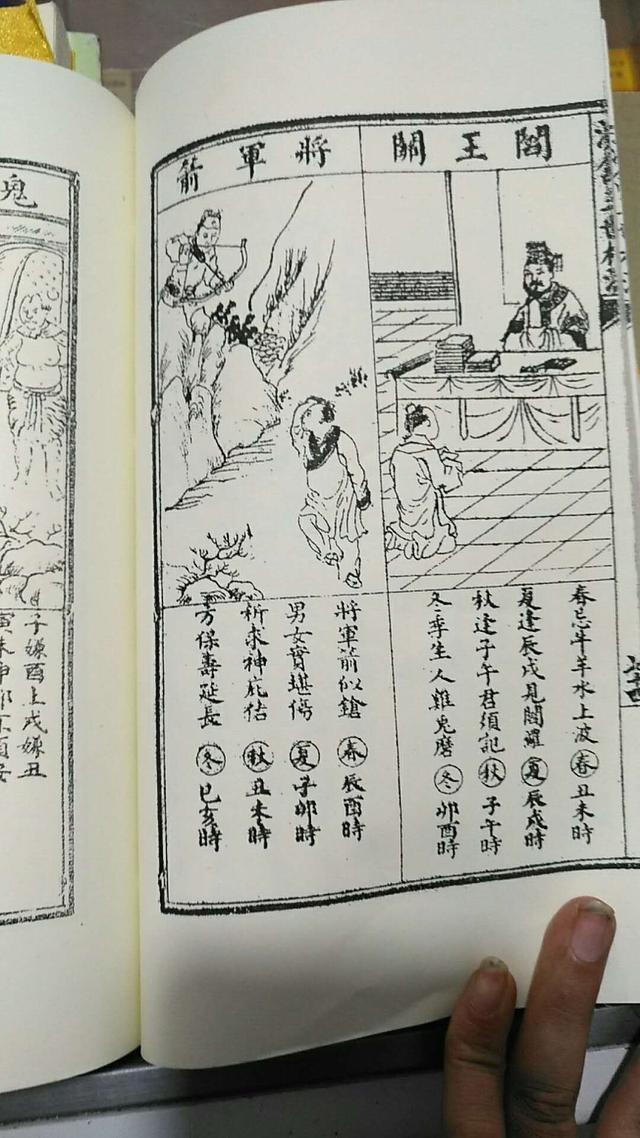 閻王關
春忌牛羊水上波 春 丑未時
夏逢辰戌見閻羅 夏 辰戌時
秋逢子午君須記 秋 子午時
冬季生人雞兔磨 冬 卯酉時
將軍箭
將軍箭似鎗 春 辰酉時
男女實堪傷 夏 子卯時
祈求神庇佑 秋 丑未時
方保壽延長 冬 巳亥時
鬼
子嫌酉上戌嫌丑